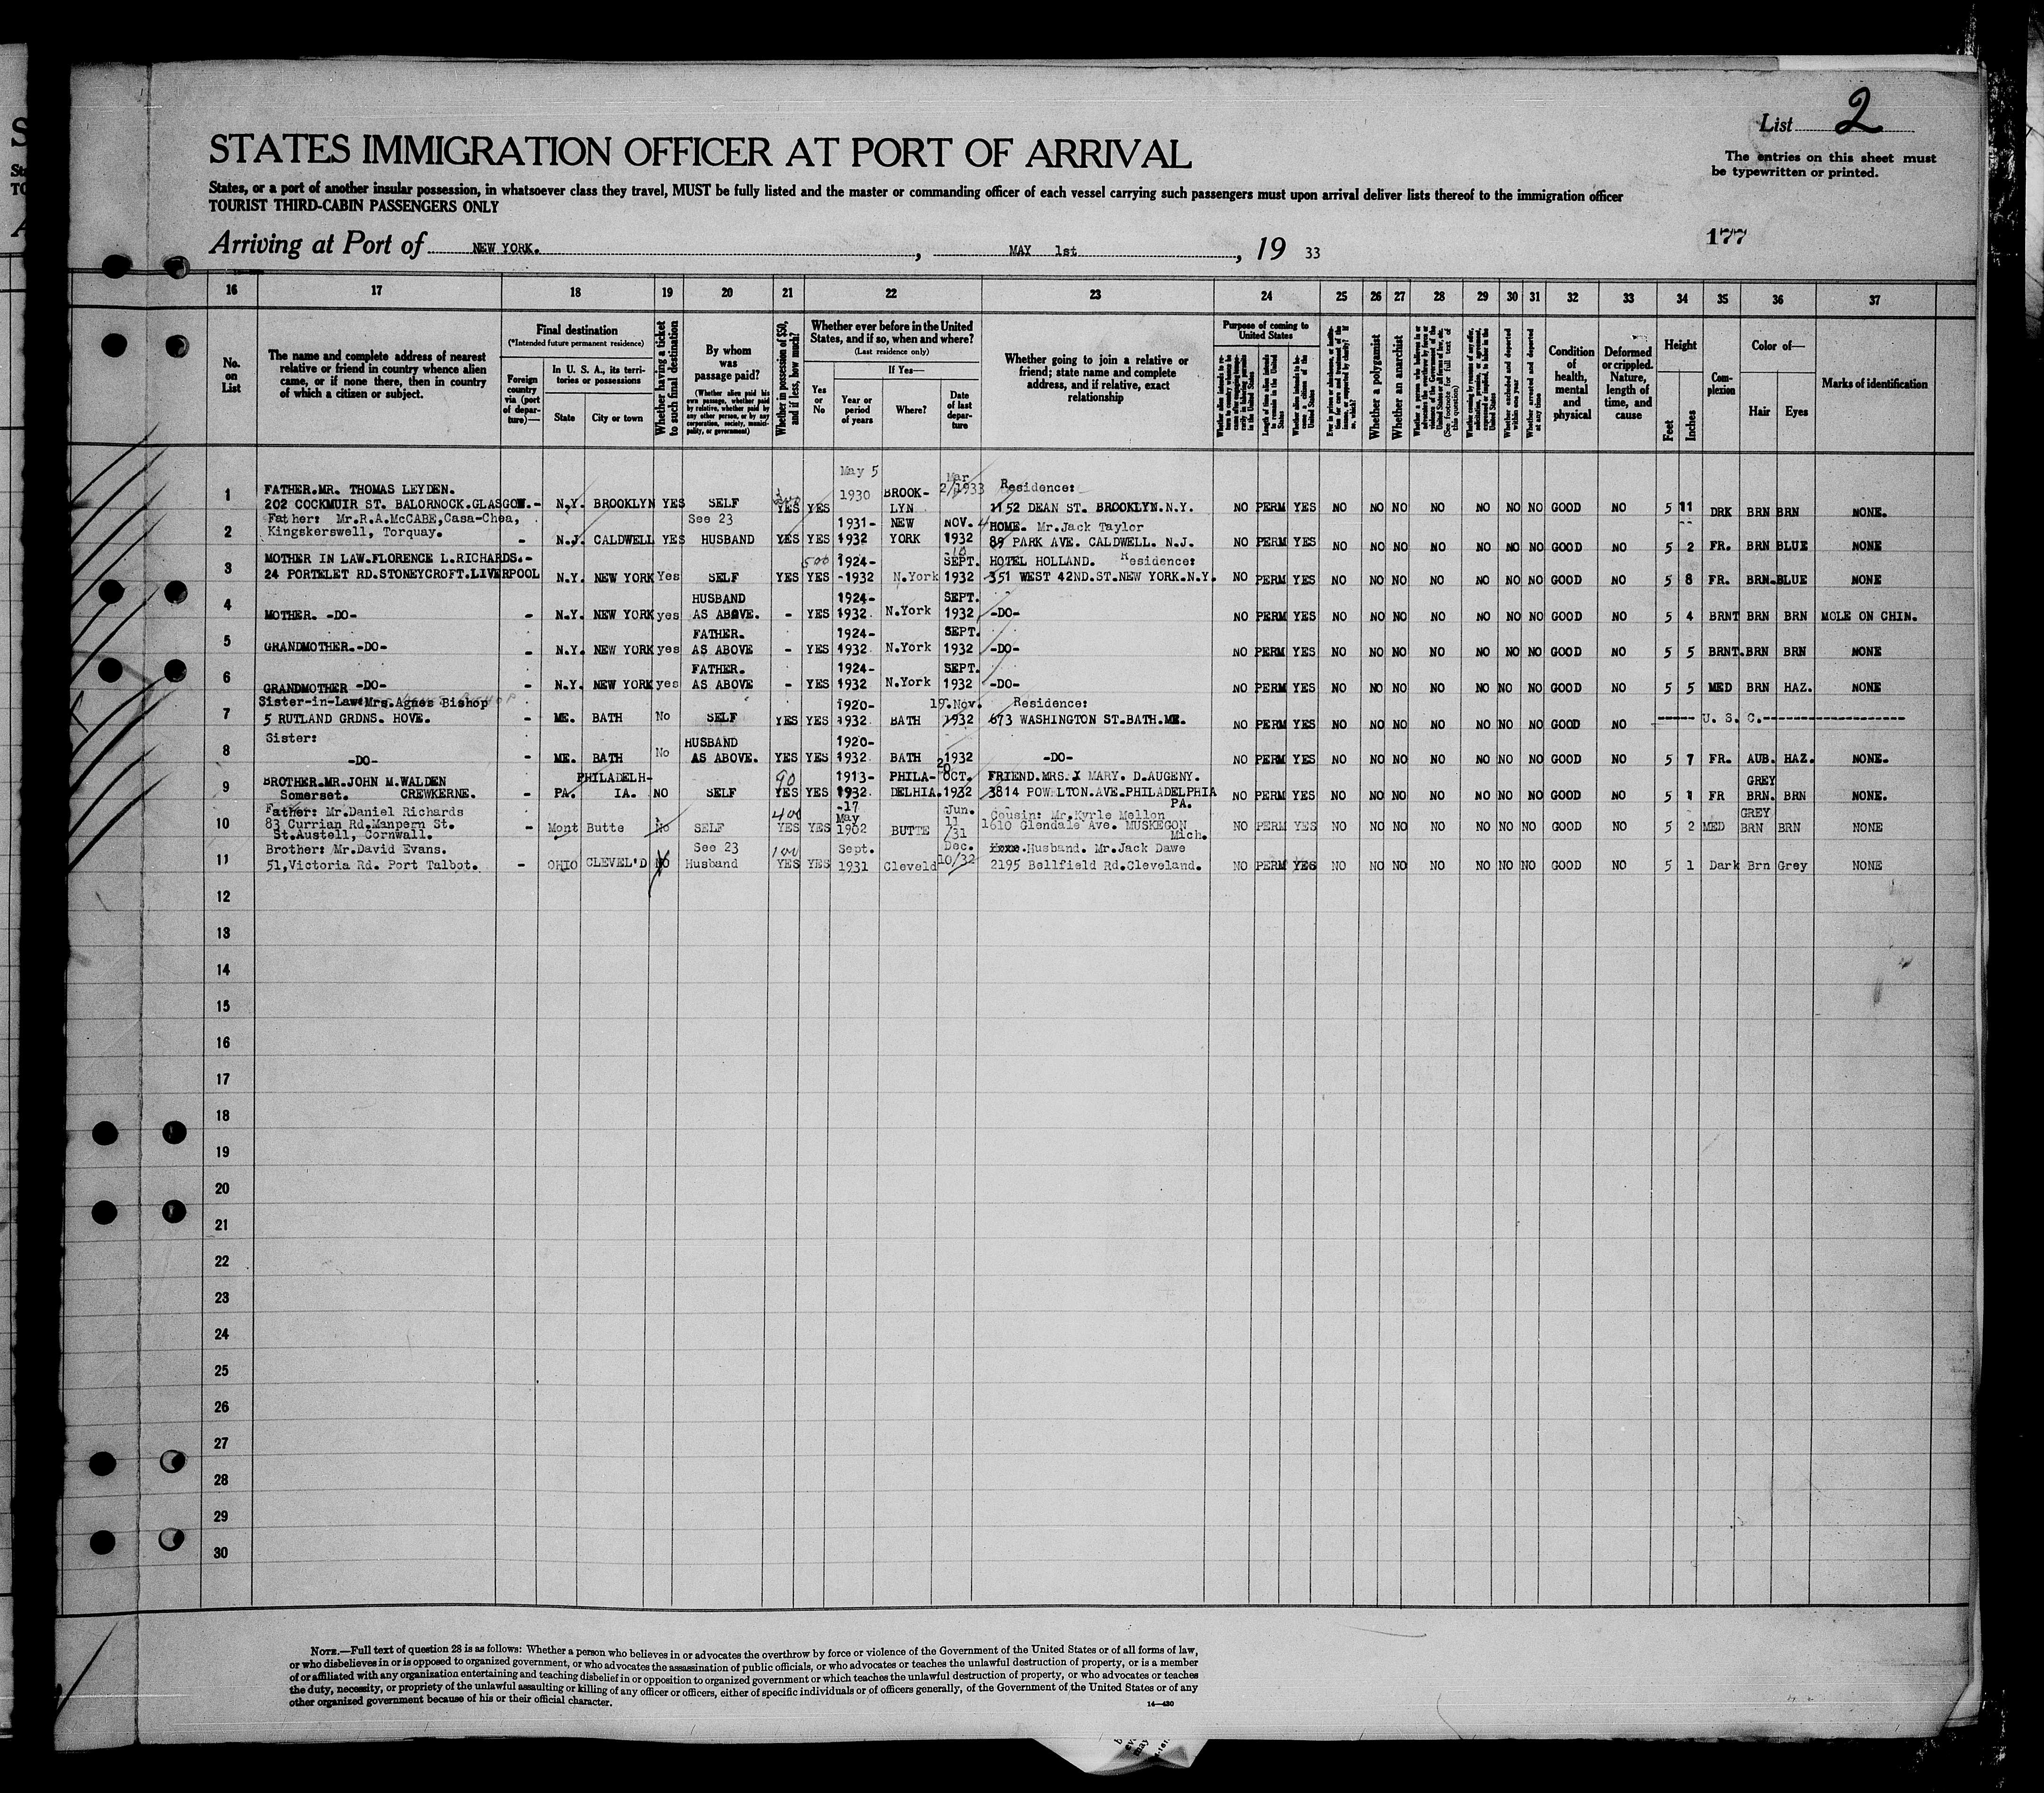 List 2
STATES IMMIGRATION OFFICER AT PORT OF ARRIVAL
The entries on this sheet must
be typewritten or printed.
States, or a port of another insular possession, in whatsoever class they travel, MUST be fully listed and the master or commanding officer of each vessel carrying such passengers must upon arrival deliver lists thereof to the immigration officer
TOURIST THIRD-CABIN PASSENGERS ONLY
177
Arriving at Port of NEW YORK. , MAY 1st , 19 33
16 17 18 19 20 21 22 23 24 25 26 27 28 29 30 31 32 33 34 35 36 37
No. on List
The name and complete address of nearest relative or friend in country whence alien came, or if none there, then in country of which a citizen or subject.
Final destination
(*Intended future permanent residence)
Foreign country via (port of departure)—
In U. S. A., its territories or possessions
State City or town
Whether having a ticket to such final destination
By whom was passage paid?
(Whether alien paid his own passage, whether paid by relative, whether paid by any other person, or by any corporation, society, municipality, or government)
Whether in possession of $50, and if less, how much?
Whether ever before in the United States, and if so, when and where?
(Last residence only)
Yes or No
If Yes—
Year or period of years
Where?
Date of last departure
Whether going to join a relative or friend; state name and complete address, and if relative, exact relationship
Purpose of coming to United States
Whether a polygamist
Whether an anarchist
Condition of health, mental and physical
Deformed or crippled. Nature, length of time, and cause
Height
Feet Inches
Complexion
Color of—
Hair Eyes
Marks of identification
1 FATHER.MR. THOMAS LEYDEN.
202 COCKMUIR ST. BALORNOCK.GLASGOW.- N.Y. BROOKLYN YES SELF YES YES May 5 1930 BROOK-LYN Mar 2/1933 Residence: 1152 DEAN ST. BROOKLYN.N.Y. NO PERM YES NO NO NO NO NO NO NO GOOD NO 5 11 DRK BRN BRN NONE.
2 Father: Mr.R.A.McCABE,Casa-Chea,
Kingskerswell, Torquay. - N.J. CALDWELL YES See 23 HUSBAND YES YES 1931-1932 NEW YORK NOV. 4 1932 HOME. Mr.Jack Taylor 89 PARK AVE. CALDWELL. N.J. NO PERM YES NO NO NO NO NO NO NO GOOD NO 5 2 FR. BRN BLUE NONE
3 MOTHER IN LAW.FLORENCE L.RICHARDS.-
24 PORTELET RD.STONEYCROFT.LIVERPOOL N.Y. NEW YORK Yes SELF 500 YES YES 1924-1932 N.York 10 SEPT. 1932 HOTEL HOLLAND. Residence: 351 WEST 42ND.ST.NEW YORK.N.Y. NO PERM YES NO NO NO NO NO NO NO GOOD NO 5 8 FR. BRN.BLUE NONE
4 MOTHER. -DO- - N.Y. NEW YORK yes HUSBAND AS ABOVE. - YES 1924-1932 N.York SEPT. 1932 -DO- NO PERM YES NO NO NO NO NO NO NO GOOD NO 5 4 BRNT BRN BRN MOLE ON CHIN.
5 GRANDMOTHER.-DO- - N.Y. NEW YORK yes FATHER. AS ABOVE - YES 1924-1932 N.York SEPT. 1932 -DO- NO PERM YES NO NO NO NO NO NO NO GOOD NO 5 5 BRNT.BRN BRN NONE
6 GRANDMOTHER -DO- - N.Y. NEW YORK yes FATHER. AS ABOVE - YES 1924-1932 N.York SEPT. 1932 -DO- NO PERM YES NO NO NO NO NO NO NO GOOD NO 5 5 MED BRN HAZ. NONE
7 Sister-in-Law:Mrs.Agnes Bishop
5 RUTLAND GRDNS. HOVE. - ME. BATH No SELF YES YES 1920-1932 BATH 19.Nov. 1932 Residence: 673 WASHINGTON ST.BATH.ME. NO PERM YES NO NO NO NO NO NO NO GOOD NO ----- U. S. C.--------------------
8 Sister:
-DO- - ME. BATH No HUSBAND AS ABOVE. YES YES 1920-1932 BATH 1932 -DO- NO PERM YES NO NO NO NO NO NO NO GOOD NO 5 7 FR. AUB. HAZ. NONE.
9 BROTHER.MR.JOHN M.WALDEN
Somerset. CREWKERNE. - PA. PHILADELH-IA. NO SELF 90 YES YES 1913-1932 PHILA-DELHIA. 20 OCT. 1932 FRIEND.MRS.X MARY. D.AUGENY. 3814 POWELTON.AVE.PHILADELPHIA PA. NO PERM YES NO NO NO NO NO NO NO GOOD NO 5 1 FR GREY BRN. BRN NONE.
10 Father: Mr.Daniel Richards
83 Currian Rd.Manpern St.
St.Austell, Cornwall. - Mont Butte No SELF 400 YES YES -17 May 1902 BUTTE Jun. 11 /31 Cousin: Mr.Kyrle Mellon 1610 Glendale Ave. MUSKEGON Mich. NO PERM YES NO NO NO NO NO NO NO GOOD NO 5 2 MED GREY BRN BRN NONE
11 Brother: Mr.David Evans.
51,Victoria Rd. Port Talbot. - OHIO CLEVEL'D NO See 23 Husband 100 YES YES Sept. 1931 Cleveld Dec. 10/32 Husband. Mr.Jack Dawe 2195 Bellfield Rd.Cleveland. NO PERM YES NO NO NO NO NO NO NO GOOD NO 5 1 Dark Brn Grey NONE
12
13
14
15
16
17
18
19
20
21
22
23
24
25
26
27
28
29
30
NOTE.—Full text of question 28 is as follows: Whether a person who believes in or advocates the overthrow by force or violence of the Government of the United States or of all forms of law,
or who disbelieves in or is opposed to organized government, or who advocates the assassination of public officials, or who advocates or teaches the unlawful destruction of property, or is a member
of or affiliated with any organization entertaining and teaching disbelief in or opposition to organized government or which teaches the unlawful destruction of property, or who advocates or teaches
the duty, necessity, or propriety of the unlawful assaulting or killing of any officer or officers, either of specific individuals or of officers generally, of the Government of the United States or of any
other organized government because of his or their official character.
14—430